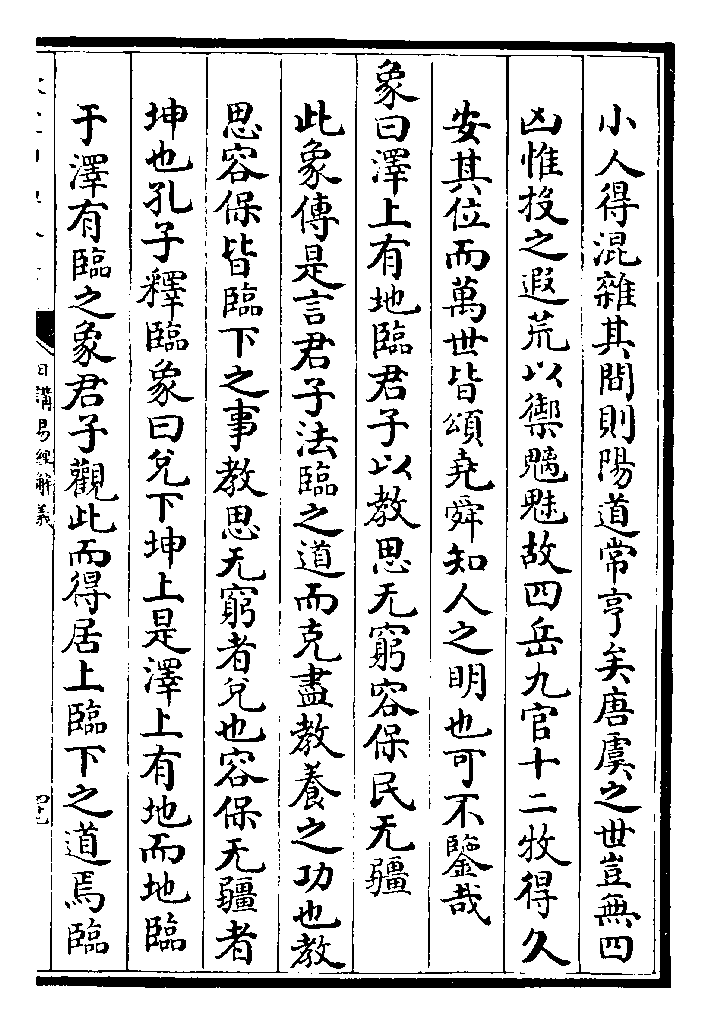 小人得混雜其間則陽道常亨矣唐虞之世豈無四
凶惟投之遐荒以禦魑魅故四岳九官十二牧得久
安其位而萬世皆頌堯舜知人之明也可不鑒哉
象曰澤上有地臨君子以教思无窮容保民无疆
此象傳是言君子法臨之道而克盡教養之功也教
思容保皆臨下之事教思无窮者兌也容保无疆者
坤也孔子釋臨象曰兌下坤上是澤上有地而地臨
于澤有臨之象君子觀此而得居上臨下之道焉臨
日講易經解義